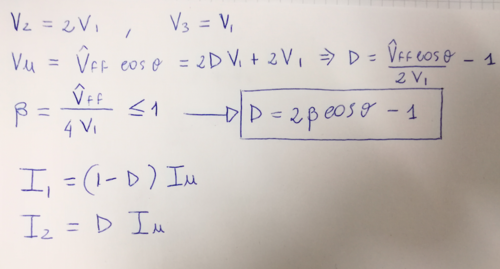 V₂ = 2V₁ , V₃ = V₁
Vμ = V̂ff cosθ = 2DV₁ + 2V₁ ⇒ D = V̂ff cosθ / 2V₁ - 1
β = V̂ff / 4V₁ ≤ 1 → D = 2βcosθ - 1
I₁ = (1-D) Iμ
I₂ = D Iμ